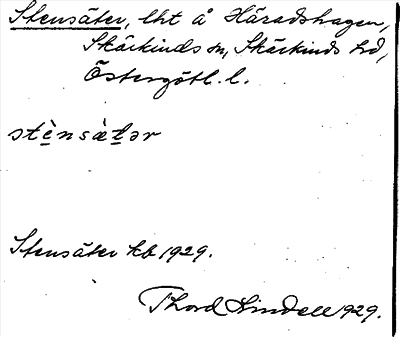 Stensäter, lht å Häradshagen,
Skärkinds sn, Skärkinds hd,
Östergötl. l.
stè̠nsæ̀t̠ər
Stensäter kb 1929.
Thord Lindell 1929.